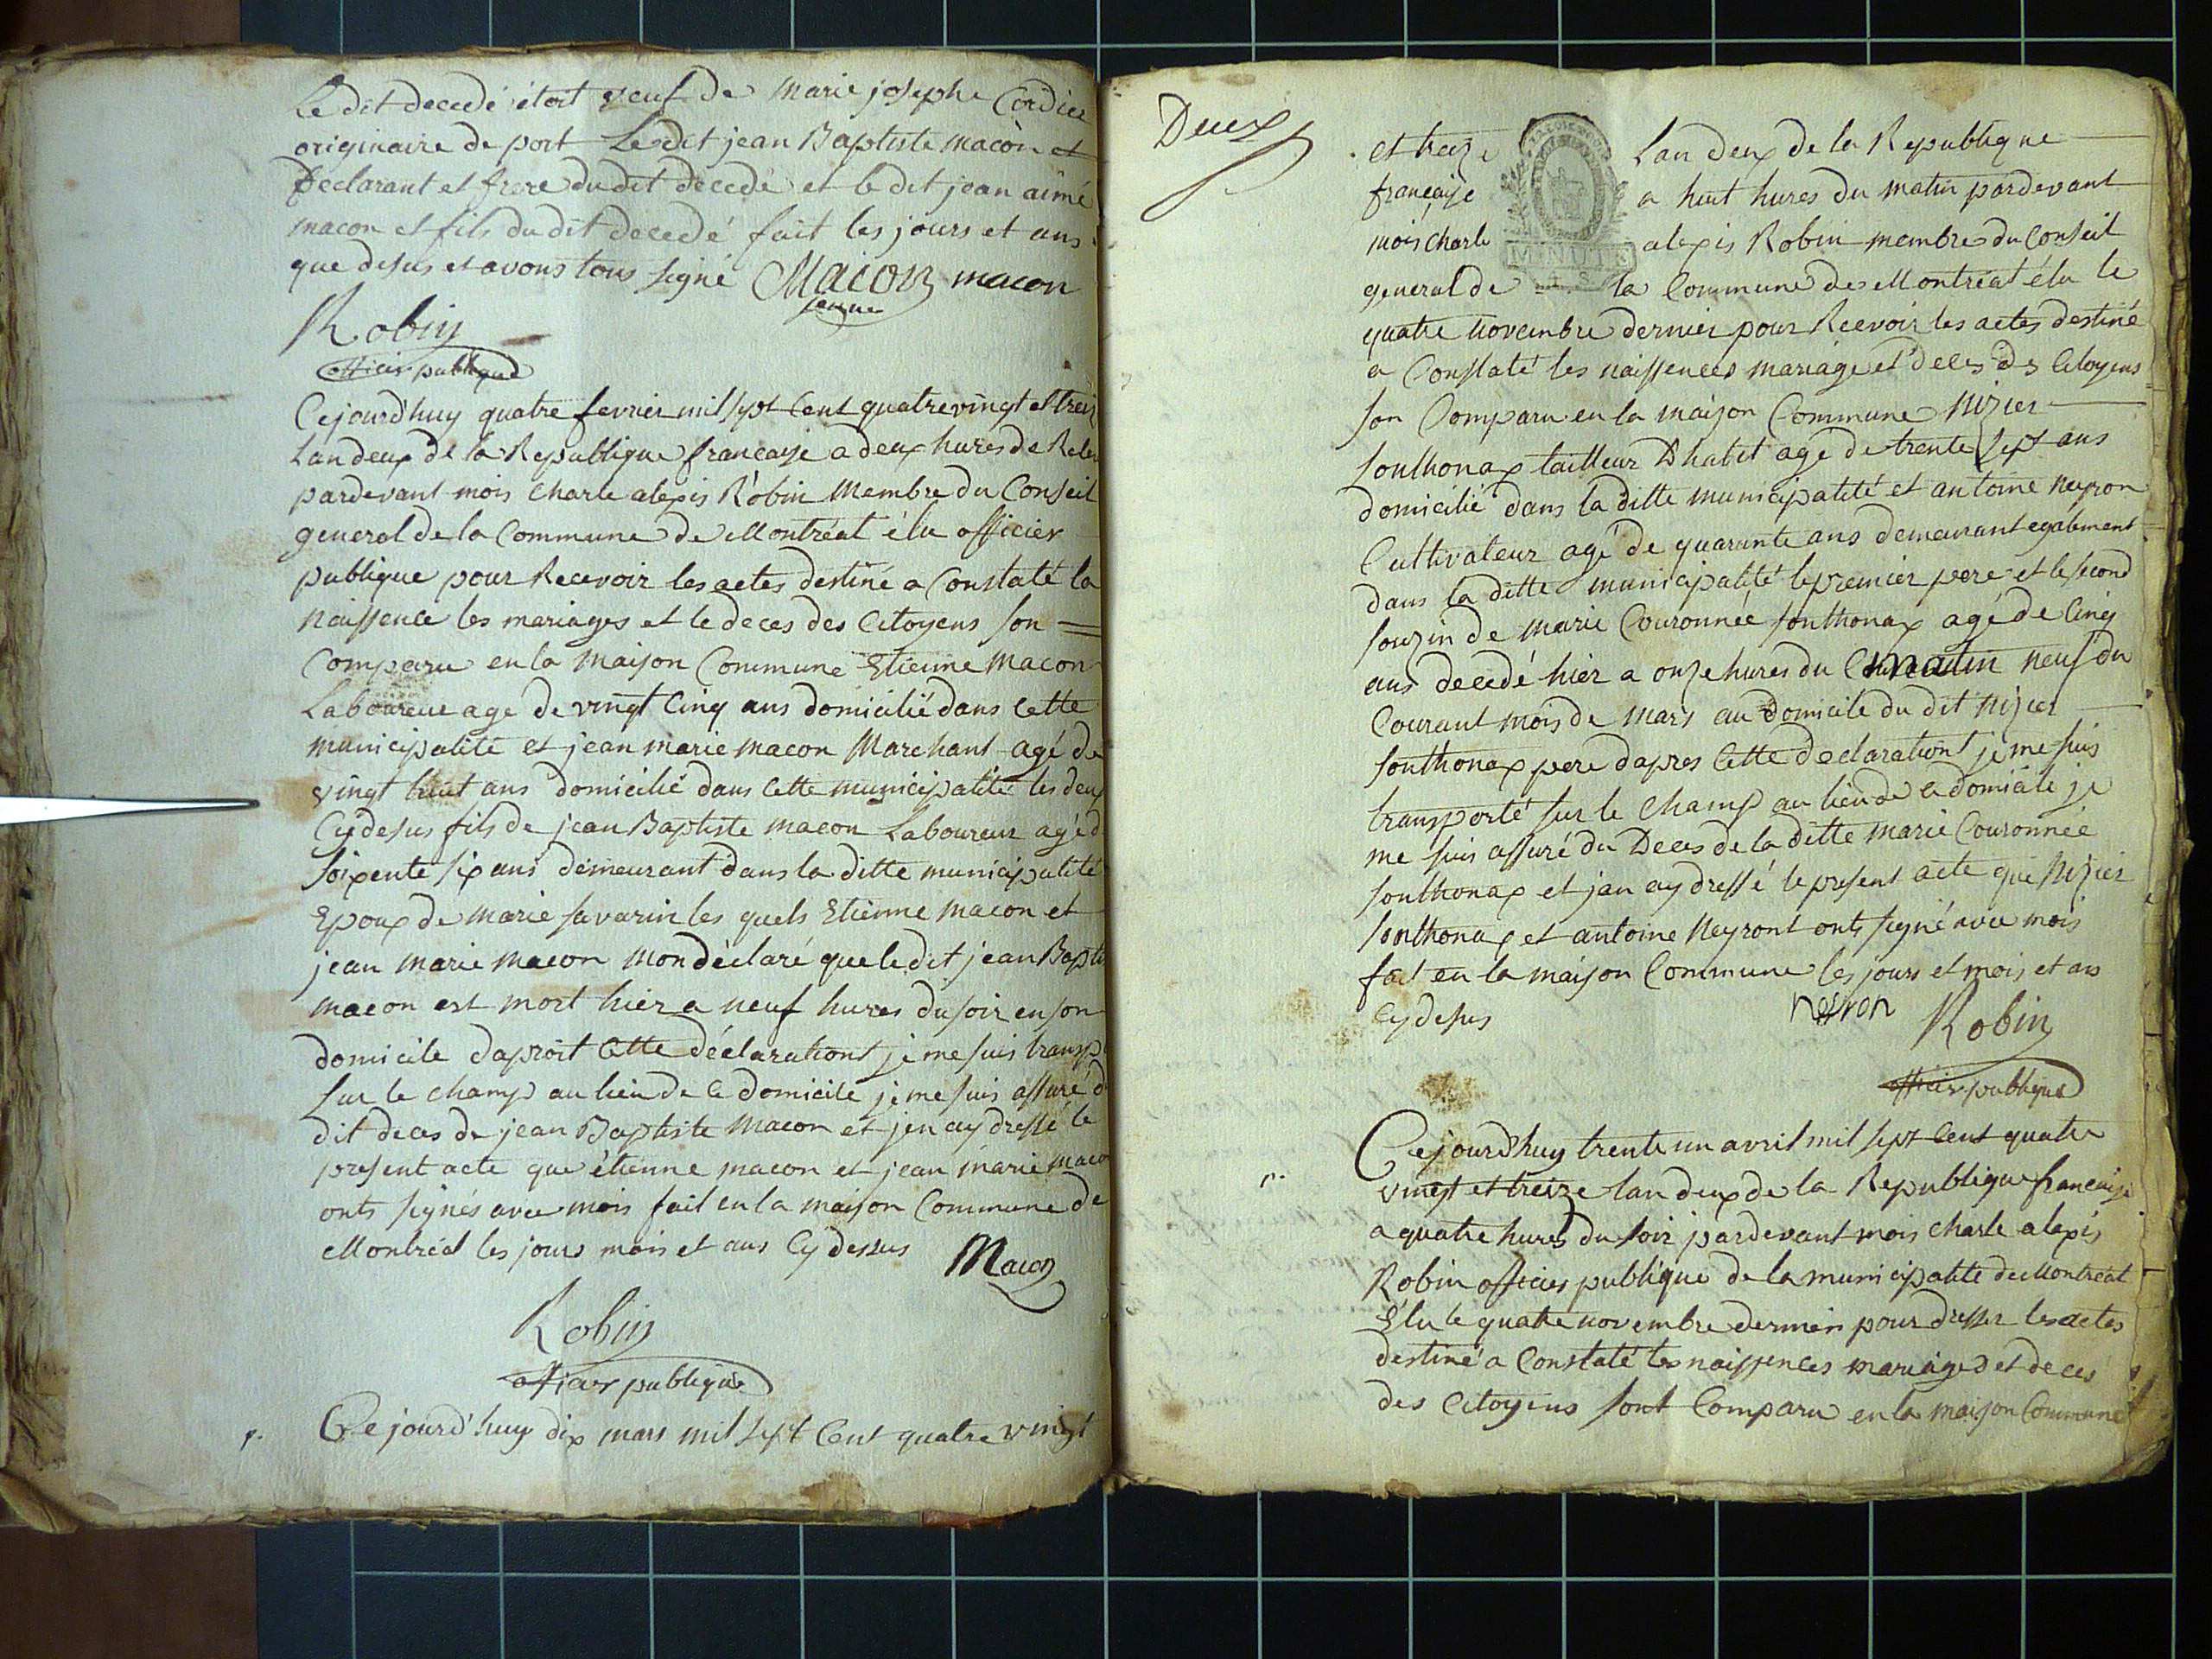 Le dit decedé étoit veuf de marie josephe Cordier
originaire de port Ledit jean Baptiste macon et
Declarant et frere dudit decedé et le dit jean aimé
macon et fils du dit decedé fait les jours et ans
que desus et avons tous signé Macon macon
jeune
Robin
officier publique
Cejourd'huy quatre fevrier mil sept Cent quatrevingt et treiz
Lan deux de la Republique francaise a deux hures de Relev
pardevant mois Charle alexis Robin Membre du Conseil
general de la Commune de Montréal élu officier
publique pour Recevoir les actes destiné a Constaté la
Naissence les mariages et le deces des Citoyens son
Comparu en la maison Commune Etienne Macon
Laboureur age de vingt Cinq ans domicilié dans Cette
municipalité et jean marie macon Marchant agé de
vingt huit ans domicilié dans Cette municipalité les deux
Cydesus fils de jean Baptiste macon Laboureur agé d
soixente six ans demeurant dans la ditte municipalité
Epoux de marie savarin les quels Etienne macon et
jean marie macon mon déclaré que ledit jean Bapti
macon est mort hier a neuf hures du soir en son
domicile daproit Cette déclarationt je me suis transp
sur le champ au lieu de Ce domicile je me suis assuré d
dit deces de jean Baptiste macon et jen ay dressé le
present acte que étienne macon et jean marie maco
onts signés avec mois fait en la maison Commune de
Montréal les jours mois et ans Cy dessus Macon
Robin
officier publique
Ce jourd'huy dix mars mil sept Cent quatre vingt
Deux
et treize Lan deux de la Republique
francaise a huit hures du matin pardevant
mois Charle alexis Robin membre du Conseil
MINUTE
general de la Commune de Montréal élu le
quatre Novembre dernier pour Recevoir les actes destiné
a Constaté les naissences mariage et deces des Citoyens
son Comparu en la maison Commune Nizier
sonthonax tailleur Dhabit agé de trente sept ans
domicilié dans la ditte municipalité et antoine neyron
Cultivateur agé de quarante ans demeurant egalement
dans la ditte municipalité le premier pere et le second
Couzin de marie Couronnée sonthonax agé de Cinq
ans decedé hier a onze hures du matin neuf du
Courant mois de mars au Domicile du dit Nizier
sonthonax pere dapres Cette declarationt je me suis
transporté sur le champ au lieu de Ce domicile je
me suis assuré du Deces de la ditte marie Couronnée
sonthonax et jan ay dressé le present acte que Nizier
sonthonax et antoine Neyront onts signé avec mois
fait en la maison Commune les jours et mois et ans
Cy desus neiron Robin
officier publique
Cejourd'huy trente un avril mil sept Cent quatre
vingt et treize lan deux de la Republique francaise
a quatre hures du soir pardevant mois Charle alexis
Robin officier publique de la municipalité de Montréal
Elu le quatre novembre dernier pour dresser les actes
destiné a Constaté les naissences mariages et deces
des Citoyens sont Comparu en la maison Commune